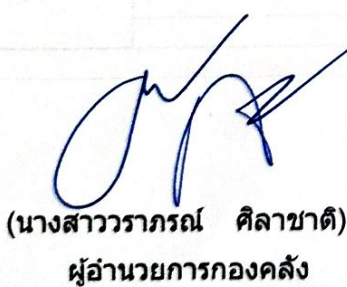 (นางสาววราภรณ์ ศิลาชาติ)
ผู้อำนวยการกองคลัง